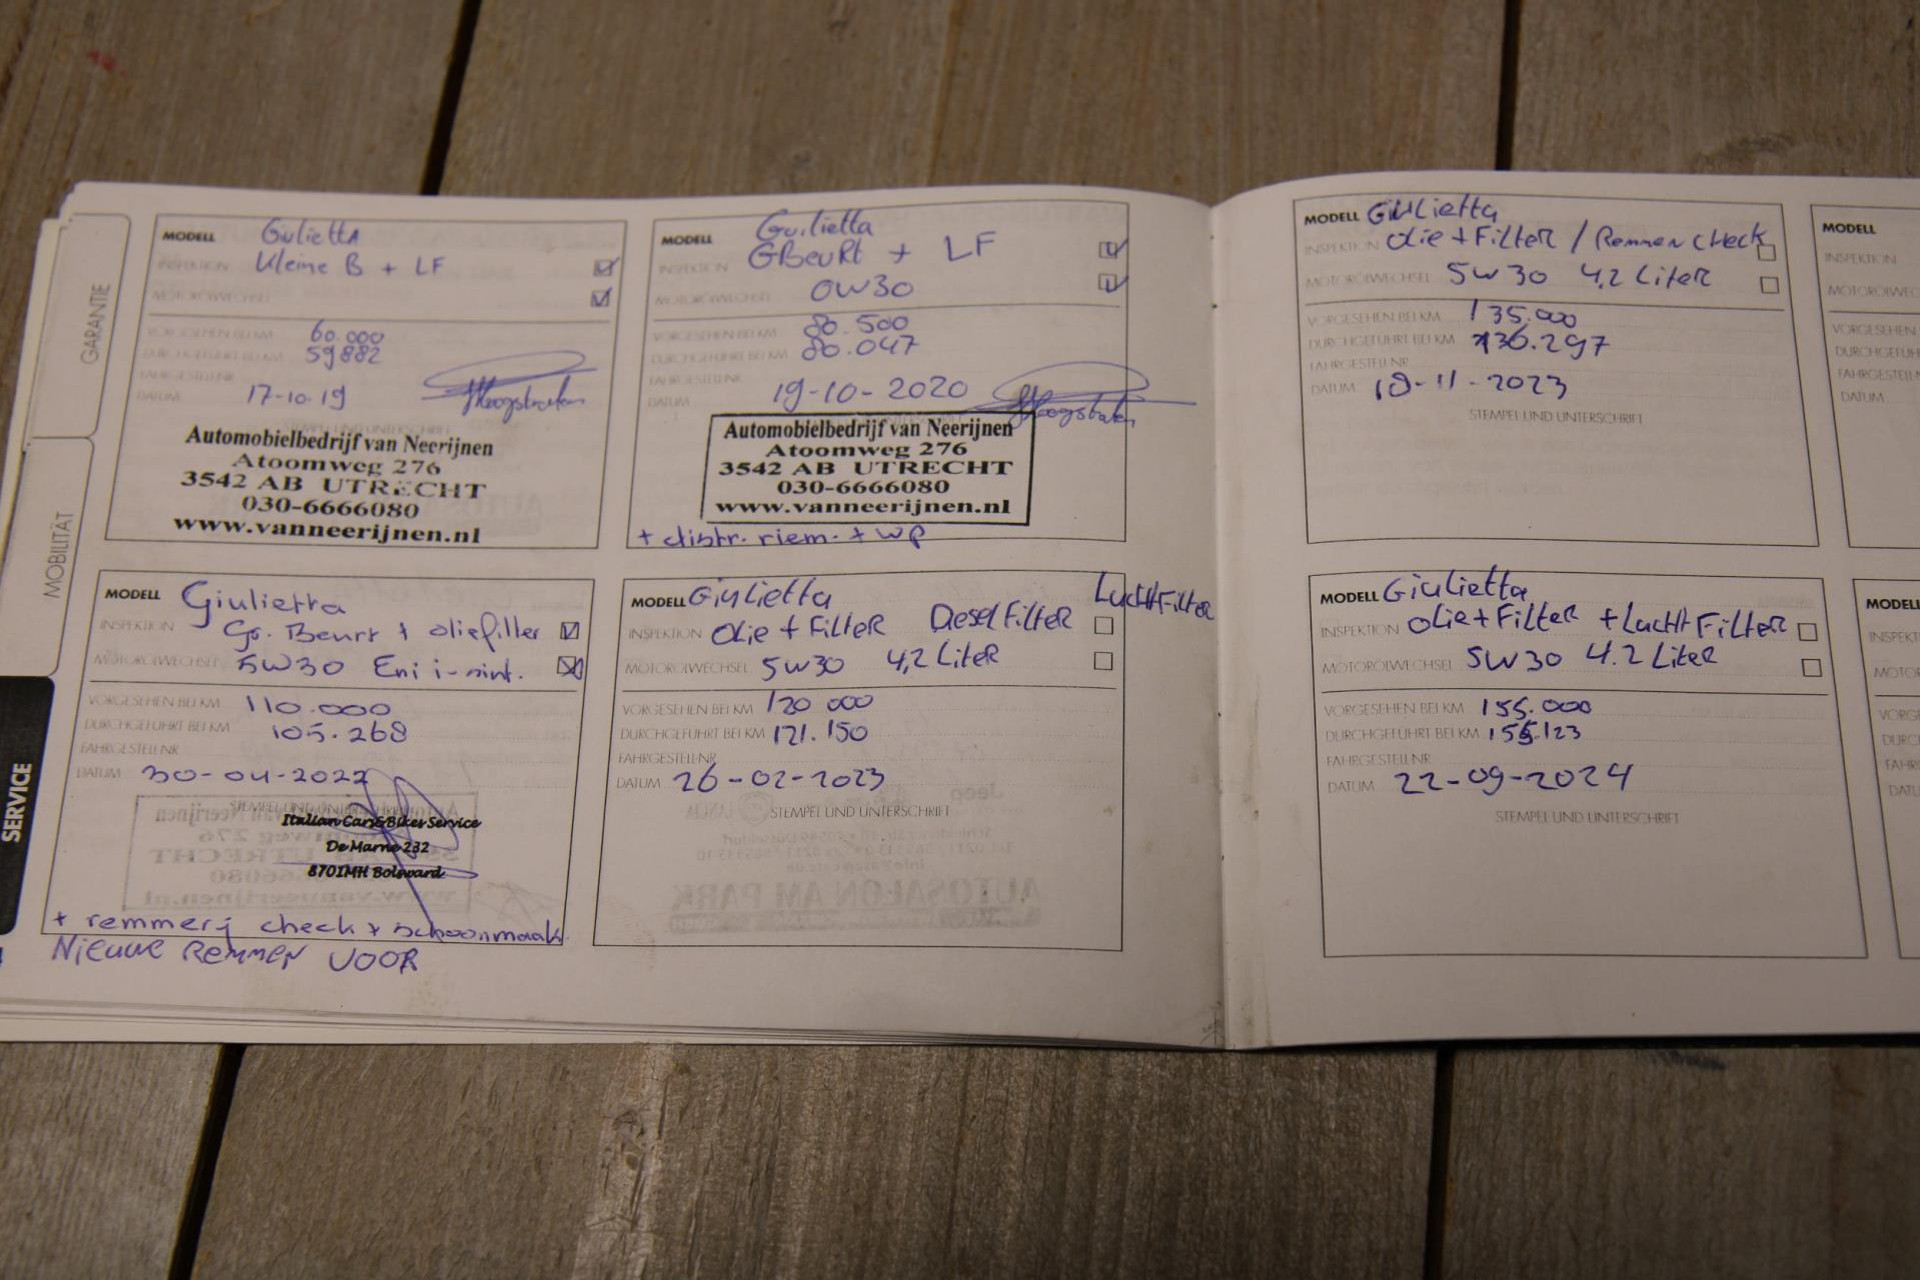 GARANTIE
MOBILITÄT
SERVICE
MODELL Giulietta
INSPEKTION Kleine B + LF
MOTORÖLWECHSEL
VORGESEHEN BEI KM 60.000
DURCHGEFÜHRT BEI KM 59882
FAHRGESTELLNR
DATUM 17-10-19
Automobielbedrijf van Neerijnen
Atoomweg 276
3542 AB UTRECHT
030-6666080
www.vanneerijnen.nl
MODELL Giulietta
INSPEKTION GBeurt + LF
MOTORÖLWECHSEL 0W30
VORGESEHEN BEI KM 80.500
DURCHGEFÜHRT BEI KM 80.047
FAHRGESTELLNR
DATUM 19-10-2020
Automobielbedrijf van Neerijnen
Atoomweg 276
3542 AB UTRECHT
030-6666080
www.vanneerijnen.nl
+ distr. riem. + wp
MODELL Giulietta
INSPEKTION Gr. Beurt + oliefilter
MOTORÖLWECHSEL 5W30 Eni i-sint.
VORGESEHEN BEI KM 110.000
DURCHGEFÜHRT BEI KM 105.268
FAHRGESTELLNR
DATUM 30-04-2022
STEMPEL UND UNTERSCHRIFT
Italian Cars & Bikes Service
De Marne 232
8701MH Bolsward
+ remmerij check + schoonmaak
NIEUWE REMMEN VOOR
MODELL Giulietta
INSPEKTION Olie + Filter Diesel Filter LuchtFilter
MOTORÖLWECHSEL 5W30 4,2 Liter
VORGESEHEN BEI KM 120 000
DURCHGEFÜHRT BEI KM 121.150
FAHRGESTELLNR
DATUM 26-02-2023
STEMPEL UND UNTERSCHRIFT
MODELL Giulietta
INSPEKTION Olie + Filter / Remmen check
MOTORÖLWECHSEL 5W30 4,2 Liter
VORGESEHEN BEI KM 135.000
DURCHGEFÜHRT BEI KM 136.297
FAHRGESTELLNR
DATUM 18-11-2023
STEMPEL UND UNTERSCHRIFT
MODELL Giulietta
INSPEKTION Olie + Filter + Lucht Filter
MOTORÖLWECHSEL 5W30 4.2 Liter
VORGESEHEN BEI KM 155.000
DURCHGEFÜHRT BEI KM 155.123
FAHRGESTELLNR
DATUM 22-09-2024
STEMPEL UND UNTERSCHRIFT
MODELL
INSPEKTION
MOTORÖLWEC
VORGESEHEN
DURCHGEFÜH
FAHRGESTELLN
DATUM
MODELL
INSPEKTI
MOTORÖ
VORGE
DURC
FAHR
DATU